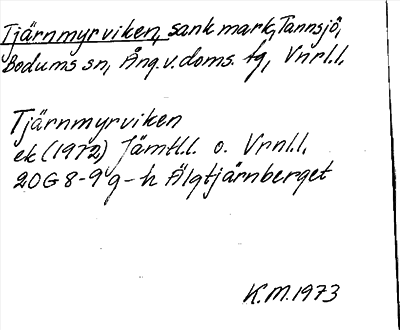 Tjärnmyrviken, sank mark, Tannsjö,
Bodums sn, Ång.v.doms. tg, Vnrl.l.
Tjärnmyrviken
ek (1972) Jämtl.l. o. Vrnl.l.
20G 8-9 g-h Älgtjärnberget
K.M. 1973